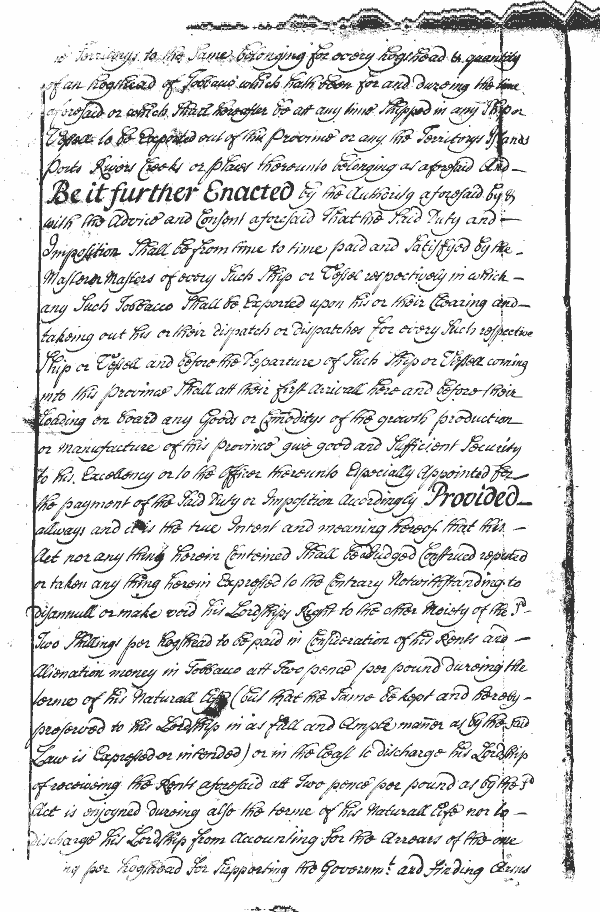 Territorys to the Same belonging for every hogshead & quantity
of an hogshead of Tobbaco which hath been for and dureing the time
aforesaid or which Shall hereafter be att any time Shipped in any Ship or
Vessell to be Exported out of this Province or any the Territorys Islands
Ports Rivers Creeks or places thereunto belonging as aforesaid And
Be it further Enacted by the Authority aforesaid by &
with the Advice and Consent aforesaid That the Said Duty and
Imposition Shall be from time to time paid and Satisfyed by the
Master or Masters of every Such Ship or Vessel respectively in which
any Such Tobbacco Shall be Exported upon his or their Clearing and
takeing out his or their dispatch or dispatches for every Such respective
Ship or Vessell and before the Departure of Such Ship or Vessell coming
into this province Shall att their first Arrivall here and before their
Loading on board any Goods or Comoditys of the growth production
or manufacture of this Province give good and Sufficient Security
to his Excellency or to the Officer thereunto Especially Appointed for
the payment of the Said Duty or Imposition Accordingly Provided
allways and it is the true Intent and meaning hereof that this
Act nor any thing herein Conteined Shall be Adjudged Construed reputed
or taken any thing herein Expressed to the Contrary Notwithstanding to
Disannull or make void his Lordships Right to the other Moiety of the Sd
Two Shillings per hogshead to be paid in Consideration of his Rents and
Alienation money in Tobbacco att Two pence per pound dureing the
terme of his Naturall life (but that the Same be kept and hereby
preserved to his Lordship in as full and Ample manner as by the Said
Law is Expressed or intended) or in the Least to discharge his Lordship
of receiveing the Rents aforesaid att Two pence per pound as by the Sd
Act is enjoyned dureing also the terme of his Naturall life nor to
discharge his Lordship from Accounting for the Arrears of the one
per hogshead for Supporting the Governmt. and finding Arms